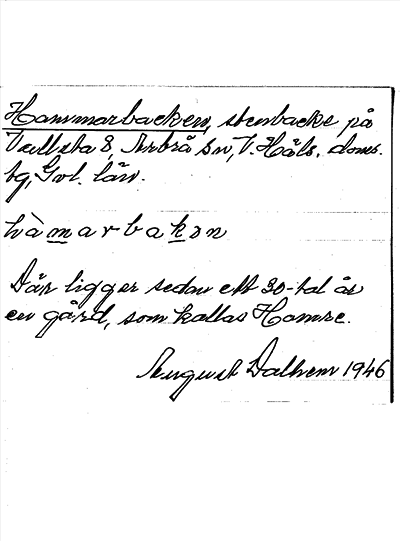 Hammarbacken, stenbacke på
Vallsta 8, Arbrå sn, V. Häls. doms.
bg, Gvl. län.
hàmarbakɘn
Där ligger sedan ett 30-tal år
en gård, som kallas Hamre.
August Dalhem 1946